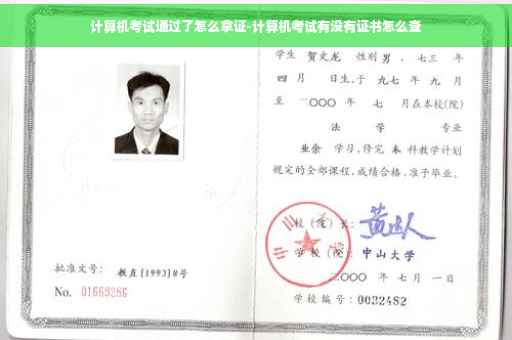 计算机考试通过了怎么拿证-计算机考试有没有证书怎么查
学生 贺文龙 性别 男 ，七三 年
四 月 日生，于 九七 年 九 月
至 二〇〇〇 年 七 月在本校(院)
法 学 专业
业余 学习，修完 本 科教学计划
规定的全部课程，成绩合格，准予毕业。
校（院）长：
学 校（院）：中山大学
批准文号： 教直[1993]8号
二〇〇〇 年 七 月 一 日
No. 01669286
学校编号：0032482